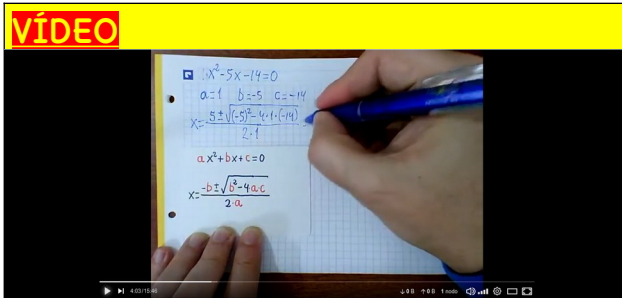 VÍDEO
x²-5x-14=0
a=1 b=-5 c=-14
x= 5±√(-5)²-4·1·(-14) / 2·1
ax²+bx+c=0
x= -b±√b²-4ac / 2·a
4:03/15:46
↓0 B ↑0 B 1 nodo